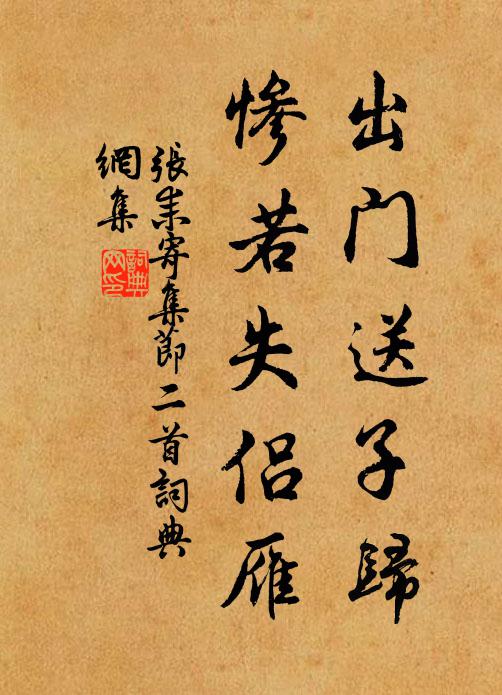 出门送子歸
惨若失侣雁
張耒寄集莭二首詞典
網集
詞典
网印